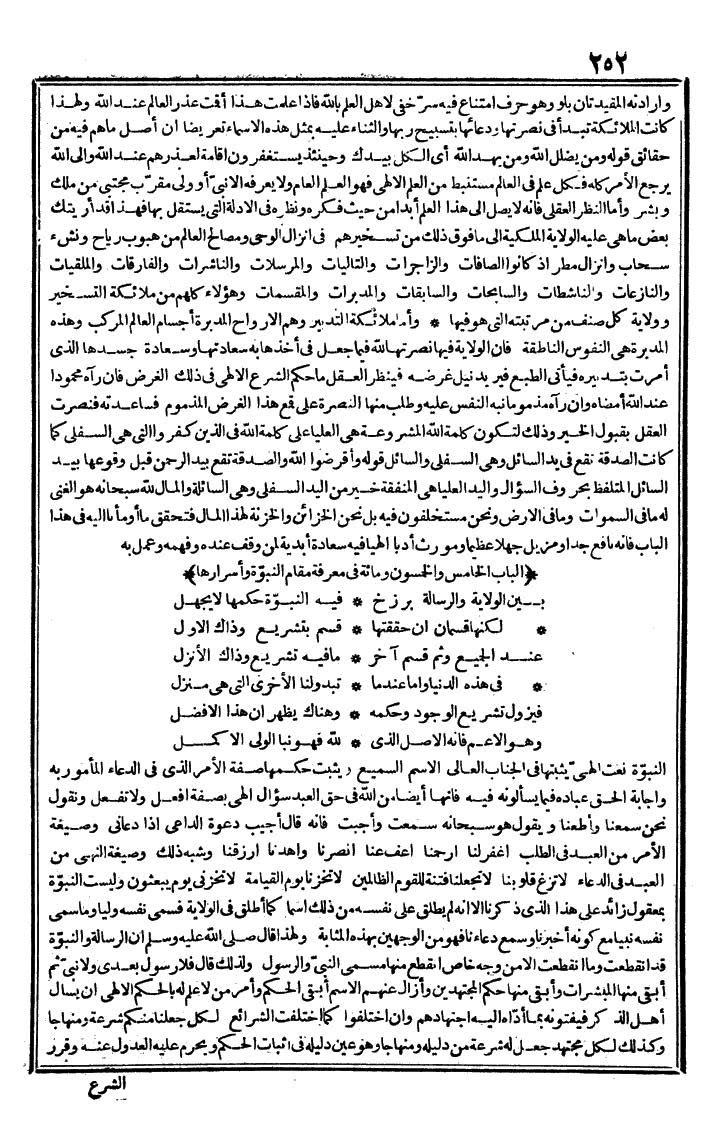 ٢٥٢
وارادته المفيدتان بلو وهو حرف امتناع فيه سر خفى لاهل العلم بالله فاذا علمت هذا أقمت عذر العالم عند الله ولهذا
كانت الملائكة تبدأ فى نصرتها ودعائها بتسبيح ربها والثناء عليه بمثل هذه الاسماء تعريضا ان أصل ما هم فيه من
حقائق قوله ومن يضلل الله ومن يهد الله أى الكل بيدك وحينئذ يستغفرون اقامة لعذرهم عند الله والى الله
يرجع الأمر كله فكل علم فى العالم مستنبط من العلم الالهى فهو العلم العام ولا يعرفه الا نبىّ أو ولى مقرّب مجتبى من ملك
وبشر وأما النظر العقلى فانه لا يصل الى هذا العلم أبدا من حيث فكره ونظره فى الادلة التى يستقل بها فهذا قد أريتك
بعض ما هى عليه الولاية الملكية الى ما فوق ذلك من تسخيرهم فى انزال الوحى ومصالح العالم من هبوب رياح ونشء
سحاب وانزال مطر اذ كانوا الصافات والزاجرات والتاليات والمرسلات والناشرات والفارقات والملقيات
والنازعات والناشطات والسابحات والسابقات والمدبرات والمقسمات وهؤلاء كلهم من ملائكة التسخير
وولاية كل صنف من مرتبته التى هو فيها * وأما ملائكة التدبير وهم الارواح المدبرة أجسام العالم المركب وهذه
المدبرة هى النفوس الناطقة فان الولاية فيها نصرتها لله فيما جعل فى أخذها به سعادتها وسعادة جسدها الذى
أمرت بتدبيره فيأتى الطبع فيريد نيل غرضه فينظر العقل ما حكم الشرع الالهى فى ذلك الغرض فان رآه محمودا
عند الله أمضاه وان رآه مذموما نبه النفس عليه وطلب منها النصرة على قمع هذا الغرض المذموم فساعدته فنصرت
العقل بقبول الخير وذلك لتكون كلمة الله المشروعة هى العليا على كلمة الله فى الذين كفروا التى هى السفلى كما
كانت الصدقة تقع فى يد السائل وهى السفلى والسائل قوله وأقرضوا الله والصدقة تقع بيد الرحمن قبل وقوعها بيد
السائل المتلفظ بحروف السؤال واليد العليا هى المنفقة خير من اليد السفلى وهى السائلة والمال لله سبحانه هو الغنى
له ما فى السموات وما فى الارض ونحن مستخلفون فيه بل نحن الخزائن والخزنة لهذا المال فتحقق ما أومأنا اليه فى هذا
الباب فانه نافع جدا ومزيل جهلا عظيما ومورث أدبا الهيا فيه سعادة أبدية لمن وقف عنده وفهمه وعمل به
﴿الباب الخامس والخمسون ومائة فى معرفة مقام النبوّة وأسرارها﴾
بين الولاية والرسالة برزخ * فيه النبوّة حكمها لا يجهل
* لكنها قسمان ان حققتها * قسم بتشريع وذاك الاول
عند الجميع وثم قسم آخر * ما فيه تشريع وذاك الأنزل
* فى هذه الدنيا واما عندما * تبدو لنا الأخرى التى هى منزل
فيزول تشريع الوجود وحكمه * وهناك يظهر ان هذا الافضل
وهو الاعم فانه الاصل الذى * لله فهو نبا الولى الاكمل
النبوّة نعت الهىّ يثبتها فى الجناب العالى الاسم السميع ويثبت حكمها صفة الأمر الذى فى الدعاء المأمور به
واجابة الحق عباده فيما يسألونه فيه فانها أيضا من الله فى حق العبد سؤال الهى بصفة افعل ولا تفعل ونقول
نحن سمعنا وأطعنا ويقول هو سبحانه سمعت وأجبت فانه قال أجيب دعوة الداعى اذا دعانى وصيغة
الأمر من العبد فى الطلب اغفر لنا ارحمنا اعف عنا انصرنا واهدنا ارزقنا وشبه ذلك وصيغة النهى من
العبد فى الدعاء لا تزغ قلوبنا لا تجعلنا فتنة للقوم الظالمين لا تخزنا يوم القيامة لا تخزنى يوم يبعثون وليست النبوّة
بمعقول زائد على هذا الذى ذكرنا الا انه لم يطلق على نفسه من ذلك اسما كما أطلق فى الولاية فسمى نفسه وليا وما سمى
نفسه نبيا مع كونه أخبرنا وسمع دعاءنا فهو من الوجهين بهذه المثابة ولهذا قال صلى الله عليه وسلم ان الرسالة والنبوّة
قد انقطعت وما انقطعت الا من وجه خاص انقطع منها مسمى النبىّ والرسول ولذلك قال فلا رسول بعدى ولا نبىّ ثم
أبقى منها المبشرات وأبقى منها حكم المجتهدين وأزال عنهم الاسم أبقى الحكم وأمر من لا علم له بالحكم الالهى ان يسأل
أهل الذكر فيفتونه بما أدّاه اليه اجتهادهم وان اختلفوا كما اختلفت الشرائع لكل جعلنا منكم شرعة ومنهاجا
وكذلك لكل مجتهد جعل له شرعة من دليله ومنهاجا وهو عين دليله فى اثبات الحكم ويحرم عليه العدول عنه وقرر
الشرع